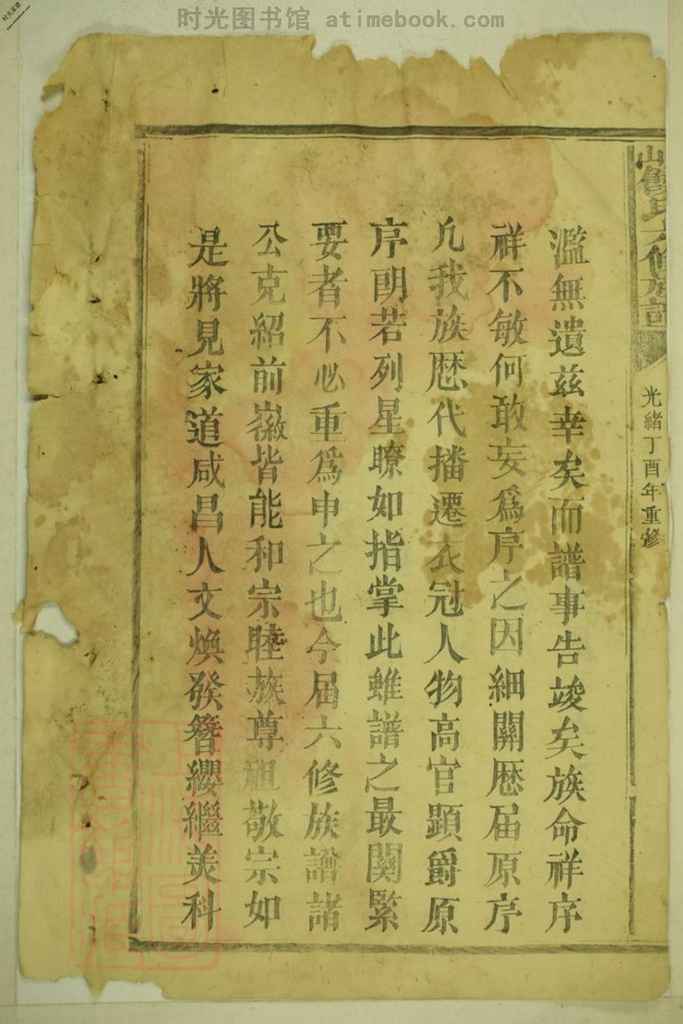 时光图书馆 atimebook.com
氏六修族譜
光緒丁酉年重修
濫無遺茲幸矣而譜事告竣矣族命祥序
祥不敏何敢妄爲序之因細閱歷届原序
凢我族歷代播遷衣冠人物高官顯爵原
序朙若列星瞭如指掌此雖譜之最關緊
要者不必重爲申之也今届六修族譜諸
公克紹前徽皆能和宗睦族尊祖敬宗如
是將見家道咸昌人文煥發簪纓繼美科